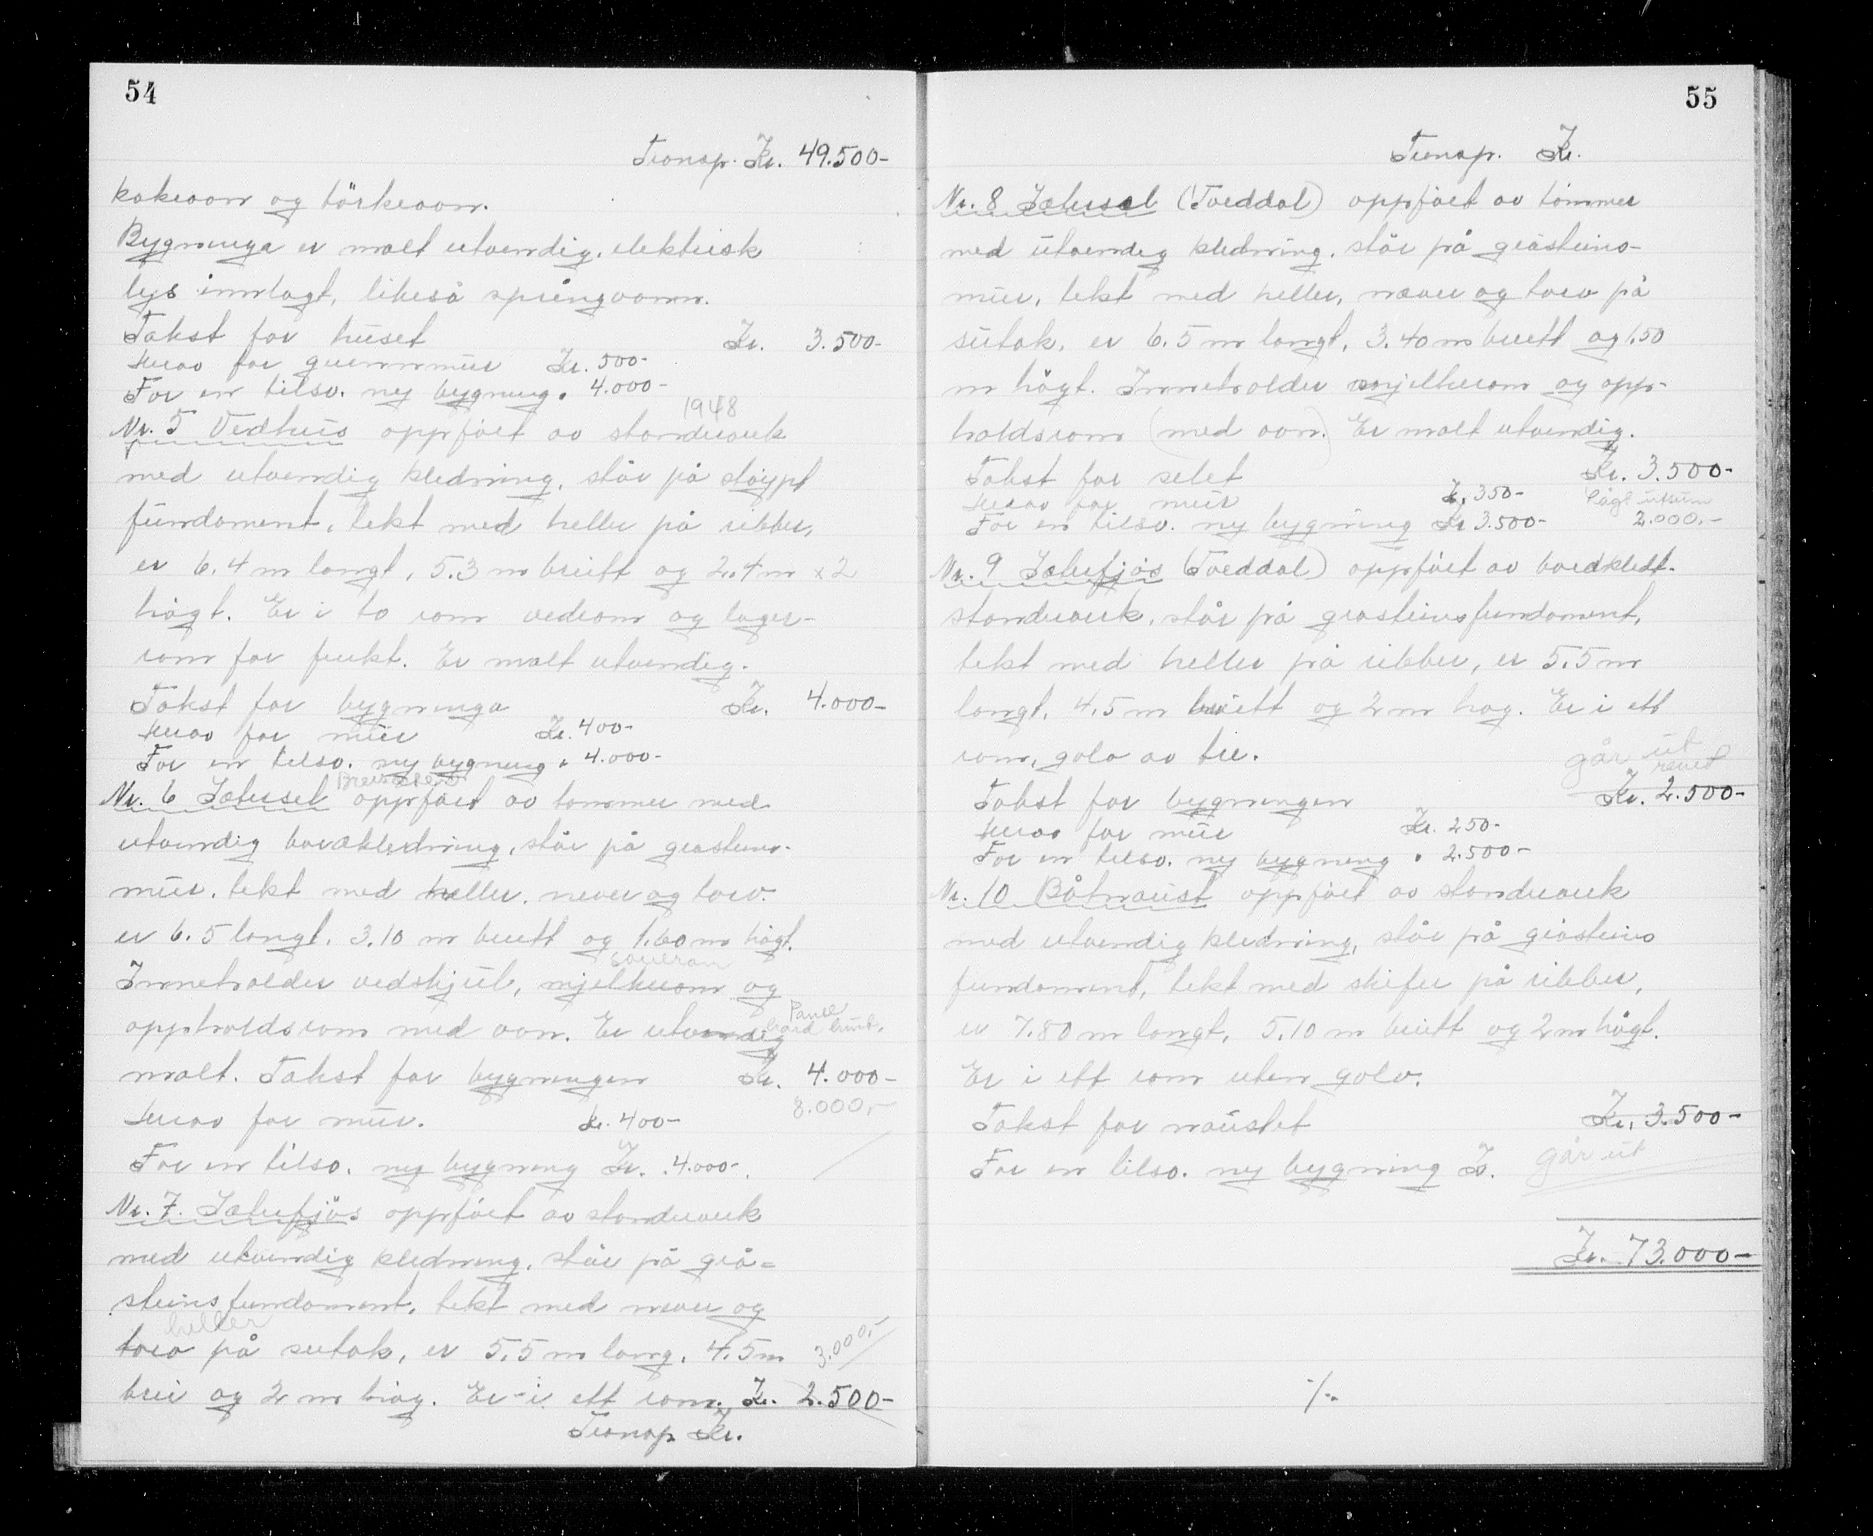 54
Transp. Kr. 49.500-
kokeovn og törkeovn.
Bygninga er malt utvendig, elektrisk
lys innlagt, likeså springvann.
Takst for huset Kr. 3.500-
Herav for grunnmur Kr. 500-
For en tilsv. ny bygning " 4.000-
1948
Nr. 5 Vedhus oppfört av standverk
med utvendig kledning, står på stöypt
fundament, tekt med heller på ribber,
er 6.4 m langt, 5.3 m breitt og 2.4 m x 2
högt. Er i to rom vedrom og lager-
rom for frukt. Er malt utvendig.
Takst for bygninga Kr. 4.000-
Herav for mur Kr. 400-
For en tilsv. ny bygning " 4.000-
Nr. 6 Sætersel oppfört av tømmer med
utvendig bordkledning, står på gråsteins-
mur, tekt med heller, never og torv.
er 6.5 langt, 3.10 m breitt og 1.60 m högt.
soverom
Inneholder vedskjul, mjelkerom og
Panel
oppholdsrom med ovn. Er utvendig
malt. Takst for bygningen Kr. 4.000-
8.000,-
Herav for mur. kr. 400-
For en tilsv. ny bygning Kr. 4.000-.
Nr. 7. Sæterfjös oppfört av standverk
med utvendig kledning, står på grå-
steinsfundament, tekt med never og
heller
torv på sutak, er 5.5 m lang, 4.5 m
3.000,-
brei og 2 m hög. Er i ett rom. Kr. 2.500-
Transp. Kr.
55
Transp. Kr.
Nr. 8 Sætersel (Torddal) oppfört av tömmer
med utvendig kledning, står på gråsteins-
mur, tekt med heller, næver og torv på
sutak, er 6.5 m langt, 3.40 m breitt og 1.50
m högt. Inneholder mjelkerom og opp-
holdsrom (med ovn.) Er malt utvendig.
Takst for selet Kr. 3.500-
Herav for mur Kr. 350-
For en tilsv. ny bygning Kr 3.500- 2.000.-
Nr. 9 Sæterfjös (Torddal) oppfört av bordkledt
standverk, står på gråsteinsfundament,
tekt med heller på ribber, er 5.5 m
langt, 4.5 m breitt og 2 m hög. Er i ett
rom, golv av tre.
går ut
revet
Takst for bygningen Kr. 2.500-
Herav for mur Kr. 250-
For en tilsv. ny bygning " 2.500-
Nr. 10 Båtnaust oppfört av standverk
med utvendig kledning, står på gråsteins
fundament, tekt med skifer på ribber,
er 7.80 m langt, 5.10 m breitt og 2 m högt.
Er i ett rom uten golv.
Takst for naustet Kr. 3.500-
For en tilsv. ny bygning Kr.
går ut
Kr. 73.000-